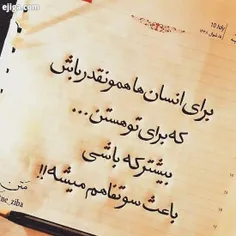 ejiga.com
10 July
برای انسان ها همونقدر باش
که برای تو هستن...
بیشتر که باشی
باعث سوتفاهم میشه!!
متن
ne_ziba